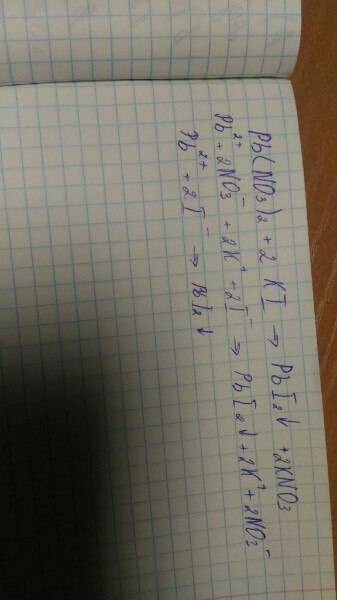 Pb(NO₃)₂ + 2 KI → PbI₂↓ + 2KNO₃
Pb²⁺ + 2NO₃⁻ + 2K⁺ + 2I⁻ → PbI₂↓ + 2K⁺ + 2NO₃⁻
Pb²⁺ + 2I⁻ → PbI₂↓